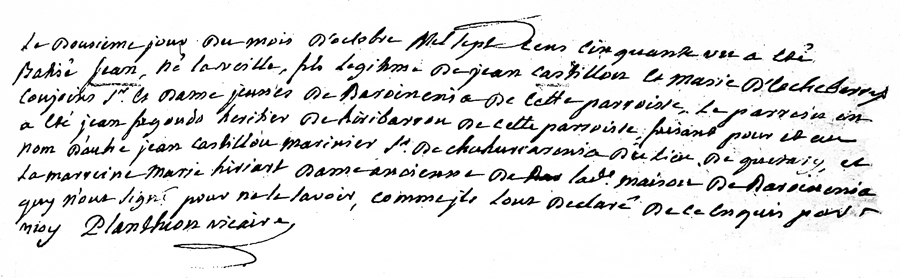 Le Dousieme jour Du mois D'octobre Mil Sept Cens Cinquante un a eté
Batisé jean, Né la veille, fils Legitime De jean Castillou et Marie D'Etcheberry
Conjoins Sr. et Dame jeunes De Baroinenia De cette parroisse. Le parrein en
a eté jean fagonde heritier De hiribarrou De cette parroisse faisant pour et au
nom D'autre jean Castillou marinier Sr. De chuhurrarenia Du Lieu De guetary, et
La marreine Marie hiriart Dame ancienne De ladte. maison De Baroinenia
quy n'ont signé pour ne le savoir, comme ils l'ont Declaré De ce Enquis par
moy Planthion vicaire